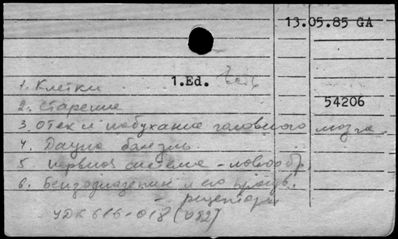 13.05.85 GA
1. Клетки 1.Ed.
2. Старение 54206
3. Отек и набухание головного мозга
4. Дауна болезнь
5 нервная система - новообр.
6. Бензодиазепин и его произв.
- рецепторы
УДК 616-018 (082)